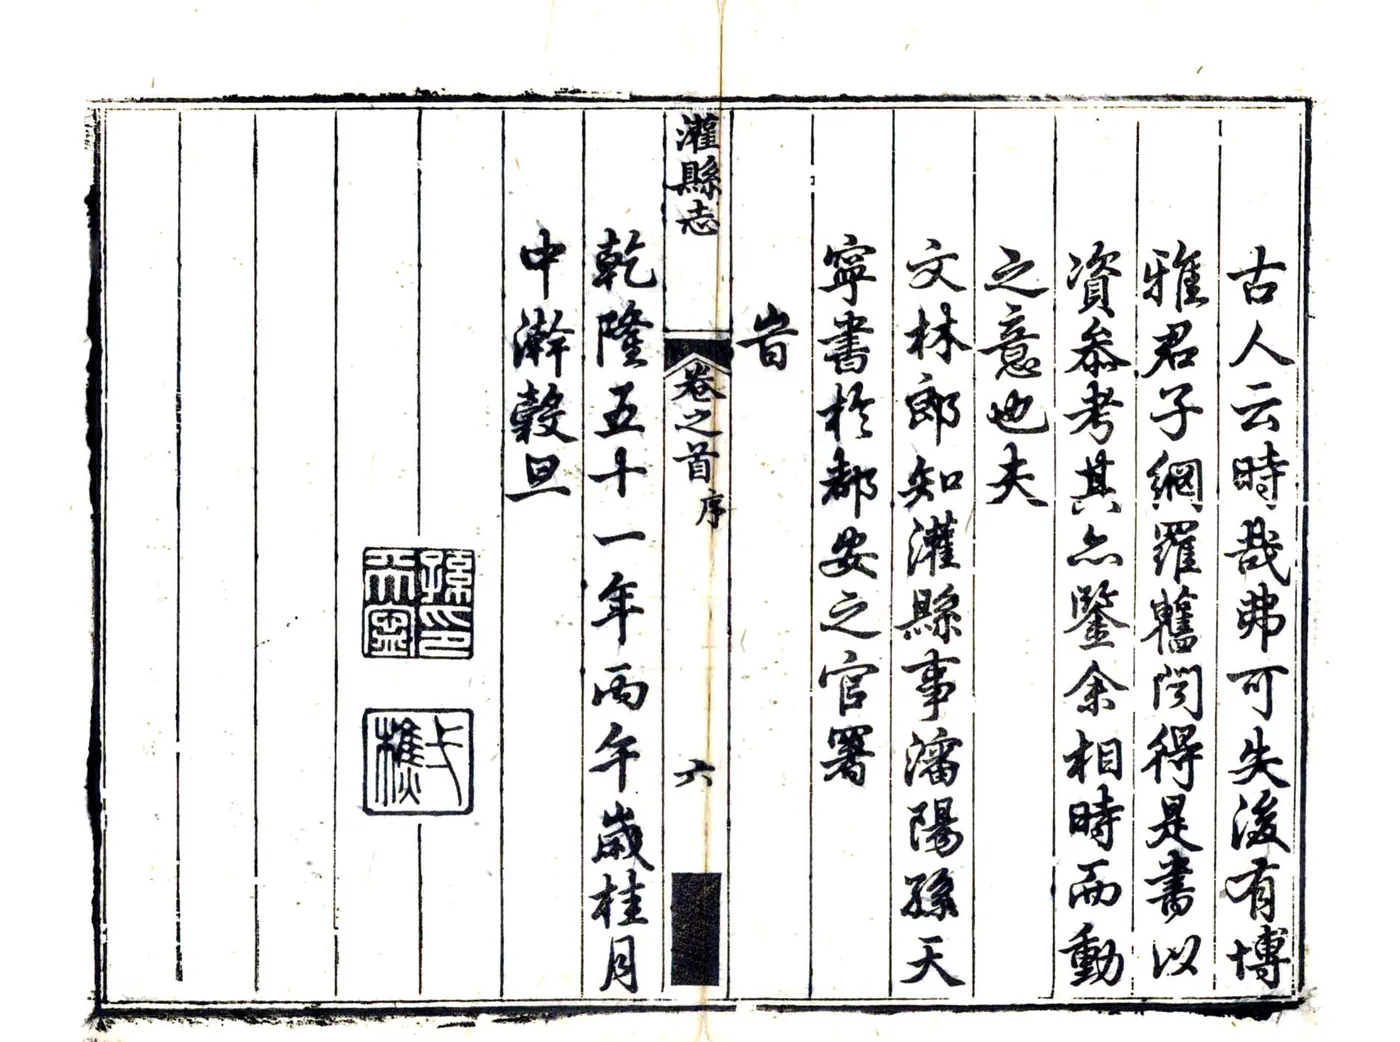 古人云時哉弗可失後有博
雅君子網羅舊聞得是書以
資叅考其亦鑒余相時而動
之意也夫
文林郎知灌縣事瀋陽孫天
寧書於都安之官署
旹
灌縣志
卷之首
序
六
乾隆五十一年丙午歲桂月
中澣穀旦
孫印天寧
樵